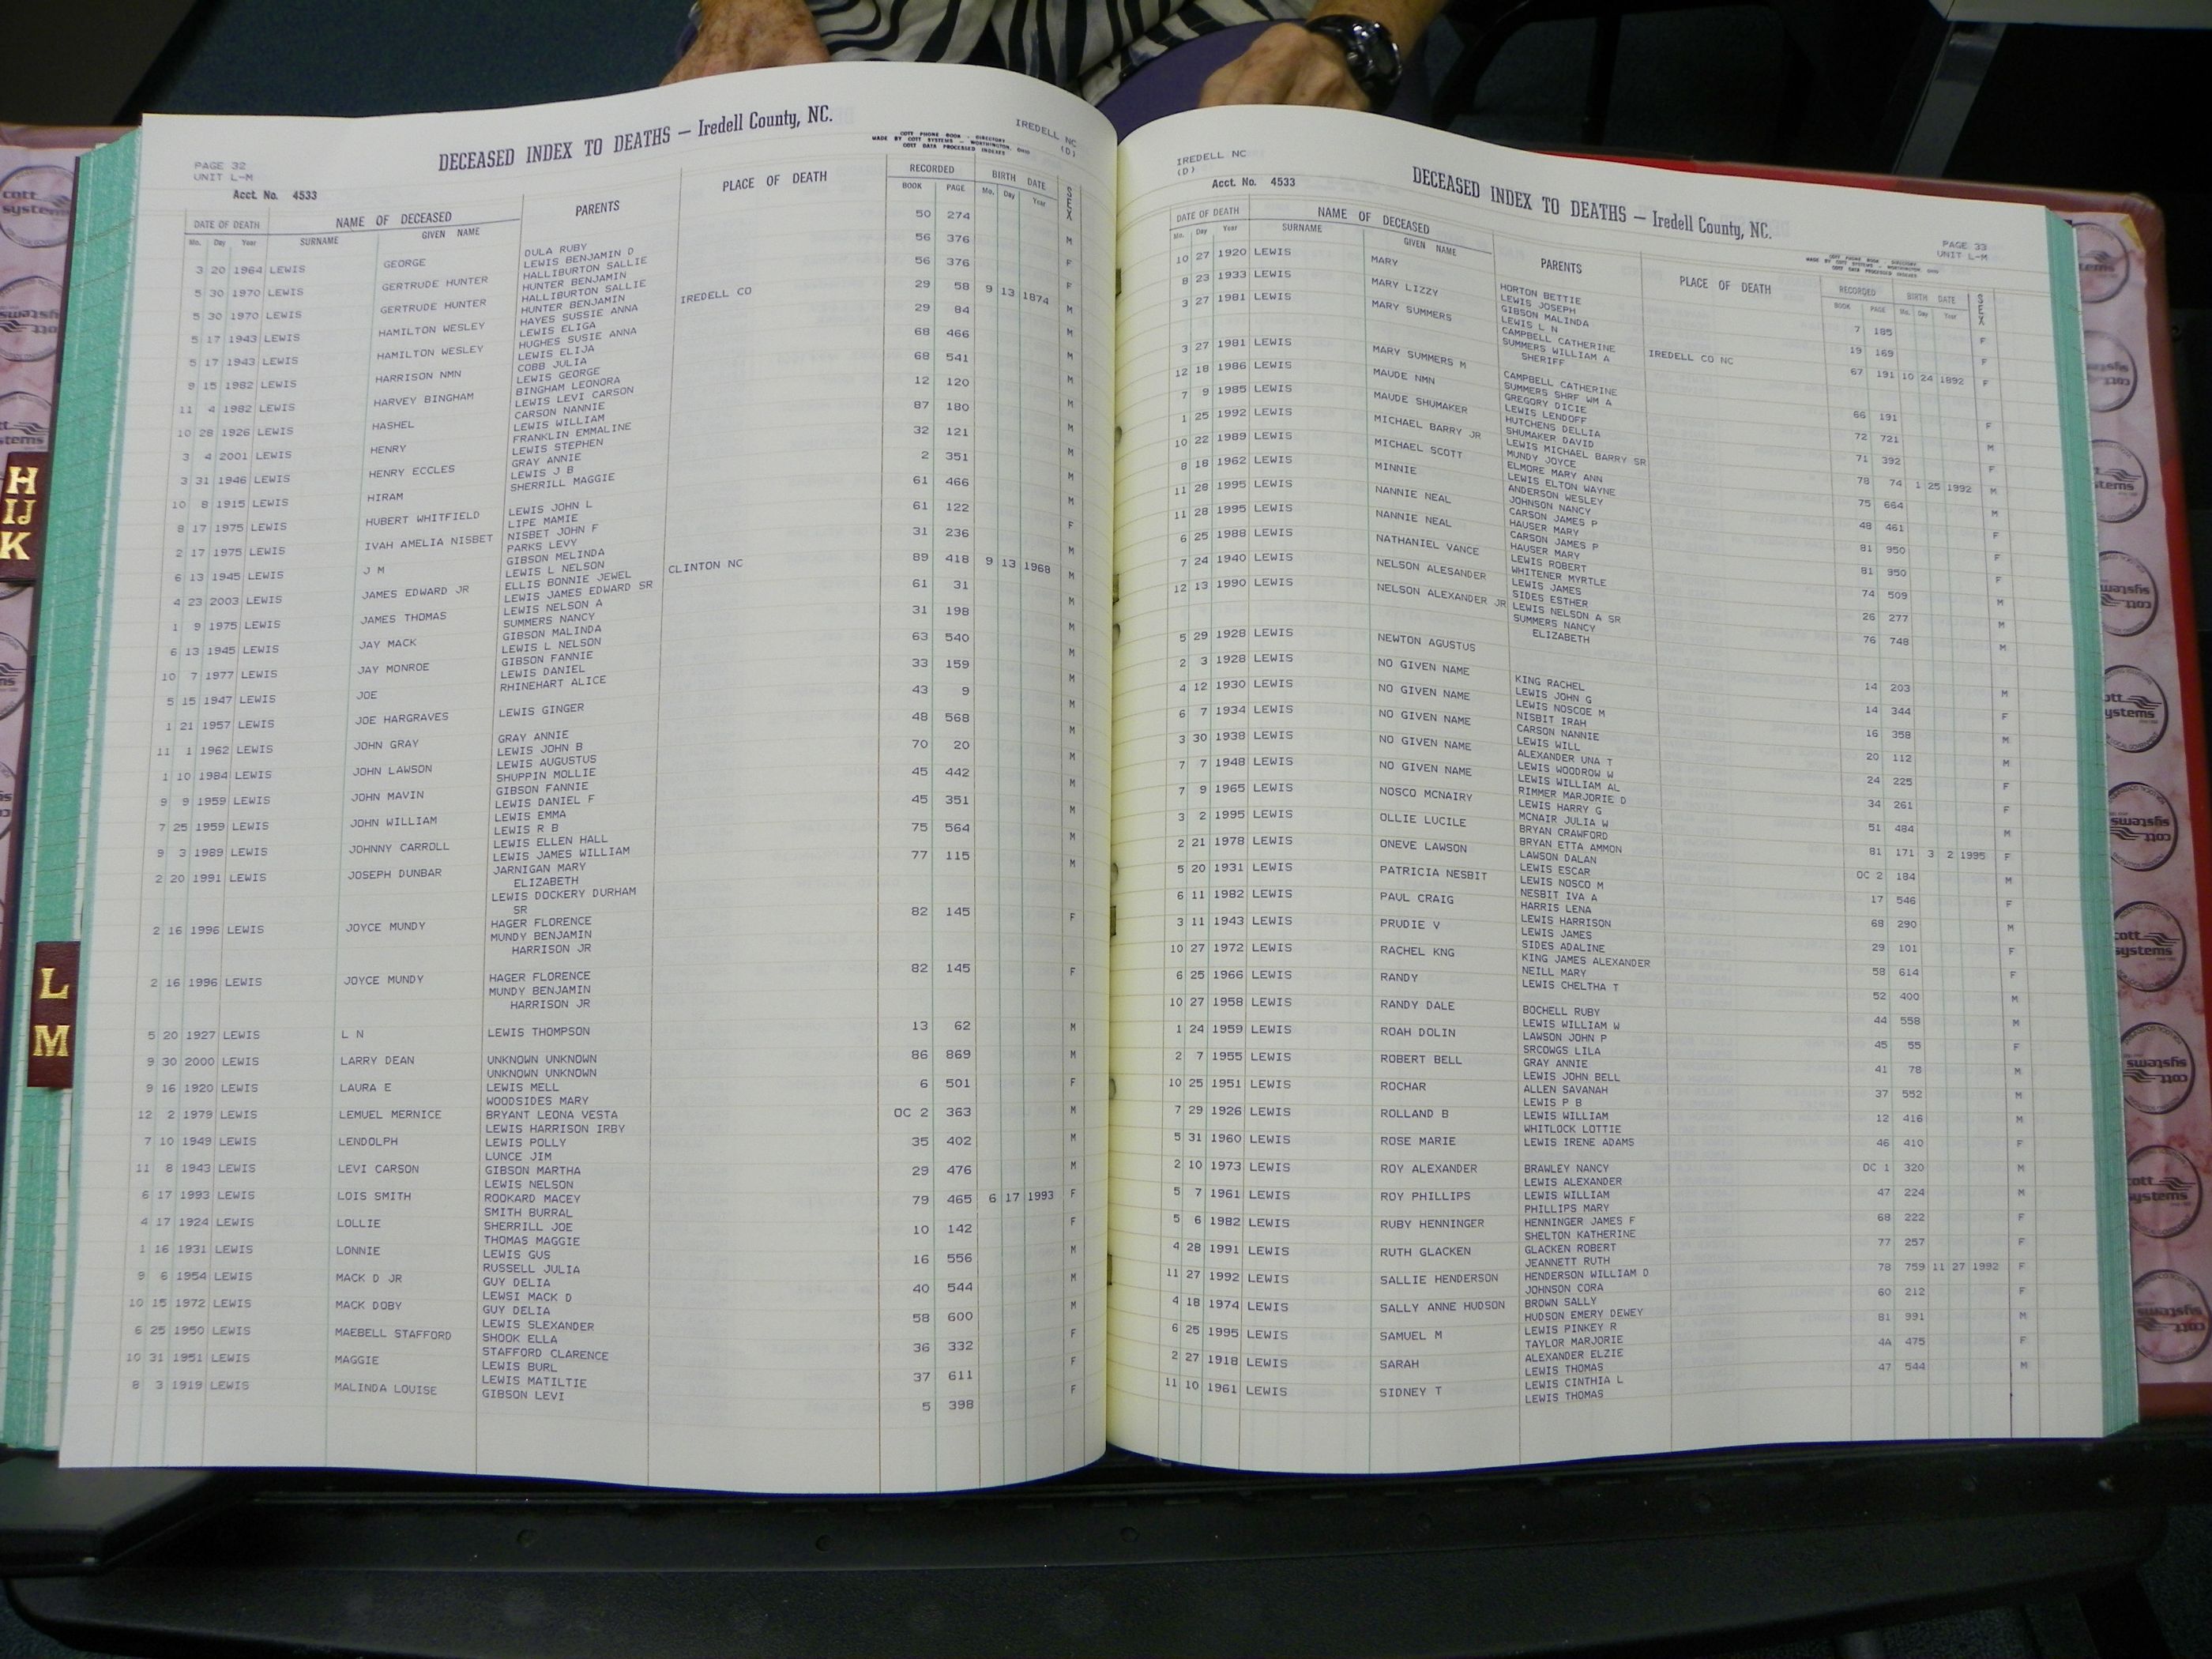 DECEASED INDEX TO DEATHS — Iredell County, NC.
IREDELL NC
(D)
COTT PHONE BOOK - DIRECTORY
MADE BY COTT SYSTEMS - WORTHINGTON, OHIO
COTT DATA PROCESSED INDEXES
PAGE 32
UNIT L-M
Acct. No. 4533
DATE OF DEATH NAME OF DECEASED PARENTS PLACE OF DEATH RECORDED BIRTH DATE SEX
Mo. Day Year SURNAME GIVEN NAME BOOK PAGE Mo. Day Year
3 20 1964 LEWIS GEORGE DULA RUBY 50 274 M
LEWIS BENJAMIN D
5 30 1970 LEWIS GERTRUDE HUNTER HALLIBURTON SALLIE 56 376 F
HUNTER BENJAMIN
5 30 1970 LEWIS GERTRUDE HUNTER HALLIBURTON SALLIE 56 376 F
HUNTER BENJAMIN
5 17 1943 LEWIS HAMILTON WESLEY HAYES SUSSIE ANNA IREDELL CO 29 58 9 13 1874 M
LEWIS ELIGA
5 17 1943 LEWIS HAMILTON WESLEY HUGHES SUSIE ANNA 29 84 M
LEWIS ELIJA
9 15 1982 LEWIS HARRISON NMN COBB JULIA 68 466 M
LEWIS GEORGE
11 4 1982 LEWIS HARVEY BINGHAM BINGHAM LEONORA 68 541 M
LEWIS LEVI CARSON
10 28 1926 LEWIS HASHEL CARSON NANNIE 12 120 M
LEWIS WILLIAM
3 4 2001 LEWIS HENRY FRANKLIN EMMALINE 87 180 M
LEWIS STEPHEN
3 31 1946 LEWIS HENRY ECCLES GRAY ANNIE 32 121 M
LEWIS J B
10 8 1915 LEWIS HIRAM SHERRILL MAGGIE 2 351 M
8 17 1975 LEWIS HUBERT WHITFIELD LEWIS JOHN L 61 466 M
LIPE MAMIE
2 17 1975 LEWIS IVAH AMELIA NISBET NISBET JOHN F 61 122 F
PARKS LEVY
6 13 1945 LEWIS J M GIBSON MELINDA 31 236 M
LEWIS L NELSON
4 23 2003 LEWIS JAMES EDWARD JR ELLIS BONNIE JEWEL CLINTON NC 89 418 9 13 1968 M
LEWIS JAMES EDWARD SR
1 9 1975 LEWIS JAMES THOMAS LEWIS NELSON A 61 31 M
SUMMERS NANCY
6 13 1945 LEWIS JAY MACK GIBSON MALINDA 31 198 M
LEWIS L NELSON
10 7 1977 LEWIS JAY MONROE GIBSON FANNIE 63 540 M
LEWIS DANIEL
5 15 1947 LEWIS JOE RHINEHART ALICE 33 159 M
1 21 1957 LEWIS JOE HARGRAVES LEWIS GINGER 43 9 M
11 1 1962 LEWIS JOHN GRAY GRAY ANNIE 48 568 M
LEWIS JOHN B
1 10 1984 LEWIS JOHN LAWSON LEWIS AUGUSTUS 70 20 M
SHUPPIN MOLLIE
9 9 1959 LEWIS JOHN MAVIN GIBSON FANNIE 45 442 M
LEWIS DANIEL F
7 25 1959 LEWIS JOHN WILLIAM LEWIS EMMA 45 351 M
LEWIS R B
9 3 1989 LEWIS JOHNNY CARROLL LEWIS ELLEN HALL 75 564 M
LEWIS JAMES WILLIAM
2 20 1991 LEWIS JOSEPH DUNBAR JARNIGAN MARY 77 115 M
ELIZABETH
LEWIS DOCKERY DURHAM
SR
2 16 1996 LEWIS JOYCE MUNDY HAGER FLORENCE 82 145 F
MUNDY BENJAMIN
HARRISON JR
2 16 1996 LEWIS JOYCE MUNDY HAGER FLORENCE 82 145 F
MUNDY BENJAMIN
HARRISON JR
5 20 1927 LEWIS L N LEWIS THOMPSON 13 62 M
9 30 2000 LEWIS LARRY DEAN UNKNOWN UNKNOWN 86 869 M
UNKNOWN UNKNOWN
9 16 1920 LEWIS LAURA E LEWIS MELL 6 501 F
WOODSIDES MARY
12 2 1979 LEWIS LEMUEL MERNICE BRYANT LEONA VESTA OC 2 363 M
LEWIS HARRISON IRBY
7 10 1949 LEWIS LENDOLPH LEWIS POLLY 35 402 M
LUNCE JIM
11 8 1943 LEWIS LEVI CARSON GIBSON MARTHA 29 476 M
LEWIS NELSON
6 17 1993 LEWIS LOIS SMITH ROOKARD MACEY 79 465 6 17 1993 F
SMITH BURRAL
4 17 1924 LEWIS LOLLIE SHERRILL JOE 10 142 F
THOMAS MAGGIE
1 16 1931 LEWIS LONNIE LEWIS GUS 16 556 M
RUSSELL JULIA
9 6 1954 LEWIS MACK D JR GUY DELIA 40 544 M
LEWSI MACK D
10 15 1972 LEWIS MACK DOBY GUY DELIA 58 600 M
LEWIS SLEXANDER
6 25 1950 LEWIS MAEBELL STAFFORD SHOOK ELLA 36 332 F
STAFFORD CLARENCE
10 31 1951 LEWIS MAGGIE LEWIS BURL 37 611 F
LEWIS MATILTIE
8 3 1919 LEWIS MALINDA LOUISE GIBSON LEVI 5 398 F
IREDELL NC
(D)
Acct. No. 4533
DECEASED INDEX TO DEATHS — Iredell County, NC.
PAGE 33
UNIT L-M
MADE BY COTT SYSTEMS - WORTHINGTON, OHIO
DATE OF DEATH NAME OF DECEASED PARENTS PLACE OF DEATH RECORDED BIRTH DATE SEX
Mo. Day Year SURNAME GIVEN NAME BOOK PAGE Mo. Day Year
10 27 1920 LEWIS MARY HORTON BETTIE 7 185 F
LEWIS JOSEPH
8 23 1933 LEWIS MARY LIZZY GIBSON MALINDA 19 169 F
LEWIS L N
3 27 1981 LEWIS MARY SUMMERS CAMPBELL CATHERINE IREDELL CO NC 67 191 10 24 1892 F
SUMMERS WILLIAM A
SHERIFF
3 27 1981 LEWIS MARY SUMMERS M CAMPBELL CATHERINE 66 191 F
SUMMERS SHRF WM A
12 18 1986 LEWIS MAUDE NMN GREGORY DICIE 72 721 M
LEWIS LENDOFF
7 9 1985 LEWIS MAUDE SHUMAKER HUTCHENS DELLIA 71 392 F
SHUMAKER DAVID
1 25 1992 LEWIS MICHAEL BARRY JR LEWIS MICHAEL BARRY SR 78 74 1 25 1992 M
MUNDY JOYCE
10 22 1989 LEWIS MICHAEL SCOTT ELMORE MARY ANN 75 664 M
LEWIS ELTON WAYNE
8 18 1962 LEWIS MINNIE ANDERSON WESLEY 48 461 F
JOHNSON NANCY
11 28 1995 LEWIS NANNIE NEAL CARSON JAMES P 81 950 F
HAUSER MARY
11 28 1995 LEWIS NANNIE NEAL CARSON JAMES P 81 950 F
HAUSER MARY
6 25 1988 LEWIS NATHANIEL VANCE LEWIS ROBERT 74 509 M
WHITENER MYRTLE
7 24 1940 LEWIS NELSON ALESANDER LEWIS JAMES 26 277 M
SIDES ESTHER
12 13 1990 LEWIS NELSON ALEXANDER JR LEWIS NELSON A SR 76 748 M
SUMMERS NANCY
ELIZABETH
5 29 1928 LEWIS NEWTON AGUSTUS KING RACHEL 14 203 M
LEWIS JOHN G
2 3 1928 LEWIS NO GIVEN NAME LEWIS NOSCOE M 14 344 F
NISBIT IRAH
4 12 1930 LEWIS NO GIVEN NAME CARSON NANNIE 16 358 M
LEWIS WILL
6 7 1934 LEWIS NO GIVEN NAME ALEXANDER UNA T 20 112 M
LEWIS WOODROW W
3 30 1938 LEWIS NO GIVEN NAME LEWIS WILLIAM AL 24 225 F
RIMMER MARJORIE D
7 7 1948 LEWIS NO GIVEN NAME LEWIS HARRY G 34 261 M
MCNAIR JULIA W
7 9 1965 LEWIS NOSCO MCNAIRY BRYAN CRAWFORD 51 484
3 2 1995 LEWIS OLLIE LUCILE BRYAN ETTA AMMON 81 171 3 2 1995 F
2 21 1978 LEWIS ONEVE LAWSON LAWSON DALAN OC 2 184 M
LEWIS ESCAR
5 20 1931 LEWIS PATRICIA NESBIT LEWIS NOSCO M 17 546 F
NESBIT IVA A
6 11 1982 LEWIS PAUL CRAIG HARRIS LENA 68 290 M
LEWIS HARRISON
3 11 1943 LEWIS PRUDIE V LEWIS JAMES 29 101 F
SIDES ADALINE
10 27 1972 LEWIS RACHEL KNG KING JAMES ALEXANDER 58 614 F
NEILL MARY
6 25 1966 LEWIS RANDY LEWIS CHELTHA T 52 400 M
10 27 1958 LEWIS RANDY DALE BOCHELL RUBY 44 558 M
LEWIS WILLIAM W
1 24 1959 LEWIS ROAH DOLIN LAWSON JOHN P 45 55 F
SRCOWGS LILA
2 7 1955 LEWIS ROBERT BELL GRAY ANNIE 41 78 M
LEWIS JOHN BELL
10 25 1951 LEWIS ROCHAR ALLEN SAVANAH 37 552 M
LEWIS P B
7 29 1926 LEWIS ROLLAND B LEWIS WILLIAM 12 416 M
WHITLOCK LOTTIE
5 31 1960 LEWIS ROSE MARIE LEWIS IRENE ADAMS 46 410 F
2 10 1973 LEWIS ROY ALEXANDER BRAWLEY NANCY OC 1 320 M
LEWIS ALEXANDER
5 7 1961 LEWIS ROY PHILLIPS LEWIS WILLIAM 47 224 M
PHILLIPS MARY
5 6 1982 LEWIS RUBY HENNINGER HENNINGER JAMES F 68 222 F
SHELTON KATHERINE
4 28 1991 LEWIS RUTH GLACKEN GLACKEN ROBERT 77 257 F
JEANNETT RUTH
11 27 1992 LEWIS SALLIE HENDERSON HENDERSON WILLIAM D 78 759 11 27 1992 F
JOHNSON CORA
4 18 1974 LEWIS SALLY ANNE HUDSON BROWN SALLY 60 212 F
HUDSON EMERY DEWEY
6 25 1995 LEWIS SAMUEL M LEWIS PINKEY R 81 991 M
TAYLOR MARJORIE
2 27 1918 LEWIS SARAH ALEXANDER ELZIE 4A 475 F
LEWIS THOMAS
11 10 1961 LEWIS SIDNEY T LEWIS CINTHIA L 47 544 M
LEWIS THOMAS
H
IJ
K
L
M
cott
systems